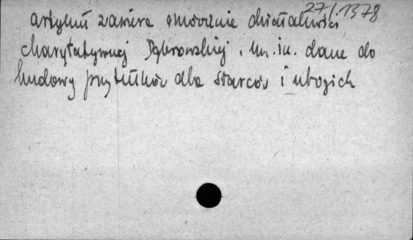 27/1378
artykuł zawiera omówienie działalności
charytatywnej Dąbrowskiej. m.in. dane do
budowy przytułków dla starców i ubogich